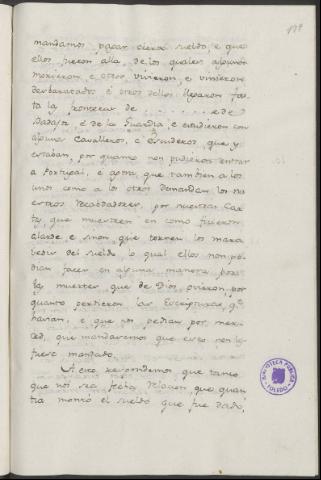 mandamos pagar cierto sueldo, e que
ellos fueron alla, de los quales algunos
morieron, e otros vivieron, e vinieron
desbaratados, e otros dellos llegaron fas
ta la
de
Badajos e de la Guardia, e estudieron con
algunos Cavalleros, e Escuderos que y
estaban, por quanto non pudieron entrar
a Portugal, e agora que tambien a los
unos como a los otros demandan los nu
estros Recabdadores, por nuestras Car
tas que muestren en como ficieron
alarde e sinon que tornen los mara
vedis del sueldo lo qual ellos non po
dian facer en alguna manera, por
las muertes que de Dios ovieron, por
quanto perdieron las Escripturas q.
havian, e que nos pedian por mer
ced, que mandaremos que esto non les
fuese mandado.
A esto respondemos que tanto
que nos sea fecha relacion que quan
tia montó el sueldo que fue dado,
BIBLIOTECA PUBLICA
TOLEDO